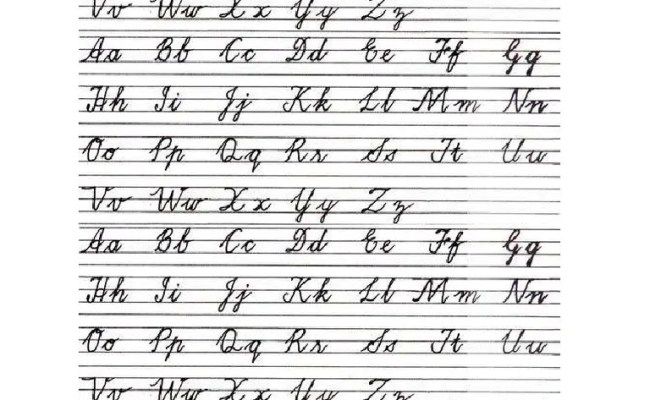 Vv Ww Xx Yy Zz
Aa Bb Cc Dd Ee Ff Gg
Hh Ii Jj Kk Ll Mm Nn
Oo Pp Qq Rr Ss Tt Uu
Vv Ww Xx Yy Zz
Aa Bb Cc Dd Ee Ff Gg
Hh Ii Jj Kk Ll Mm Nn
Oo Pp Qq Rr Ss Tt Uu
Vv Ww Xx Yy Zz